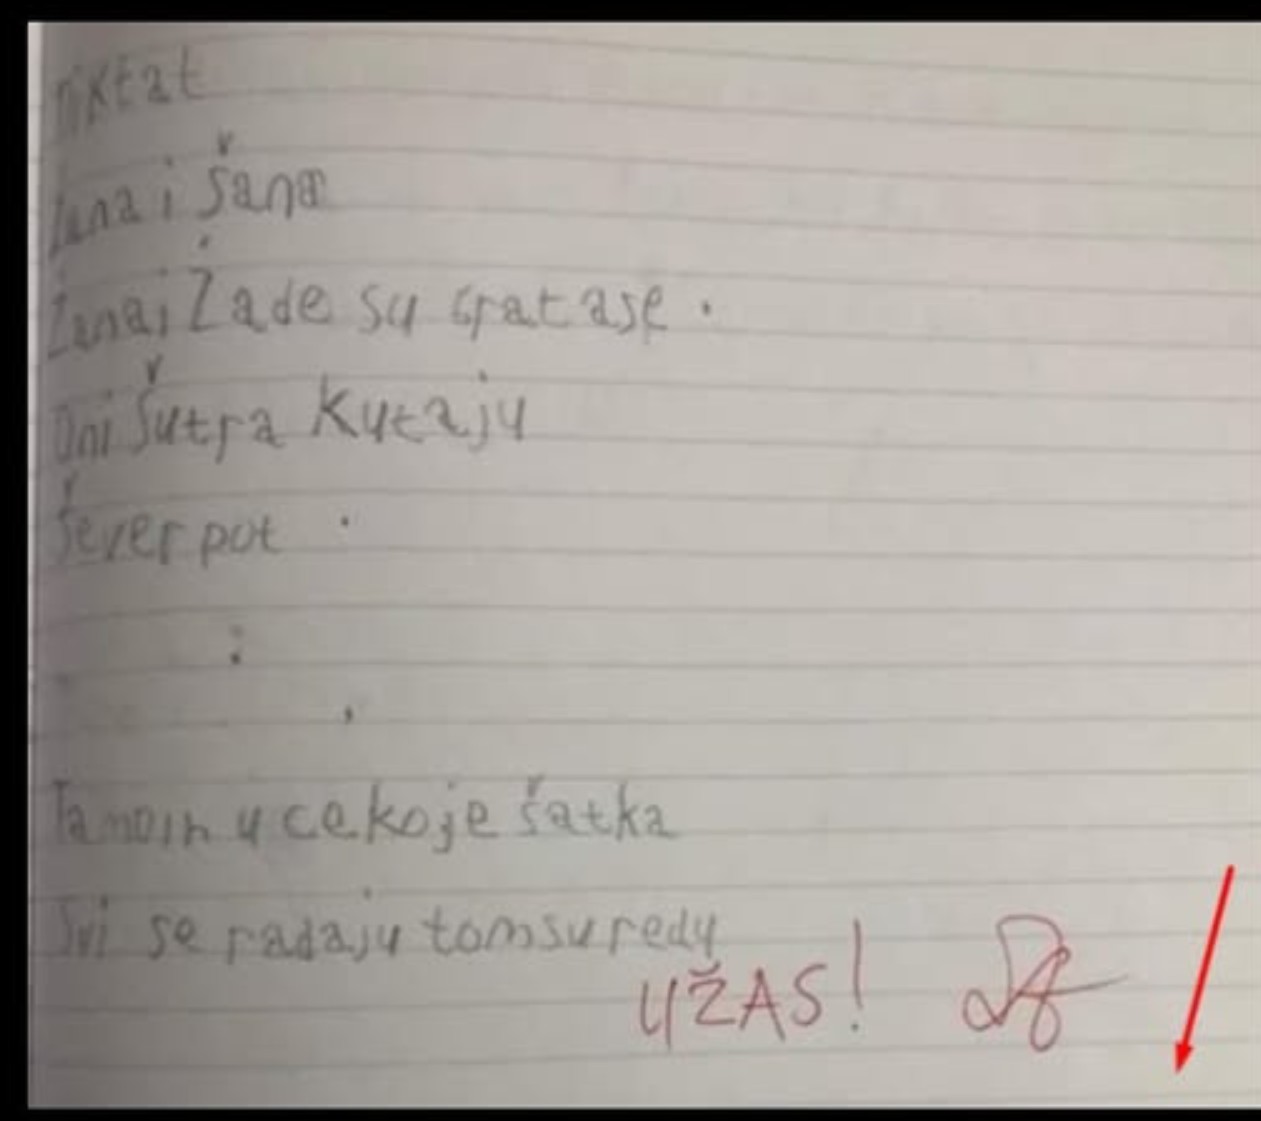 Žana i Šana
Žana i Žade su cratase.
Oni šutra kutaju
šever pot.
:
,
Tamoin u cekoje šatka
Svi se radaju tomsuredu
UŽAS!